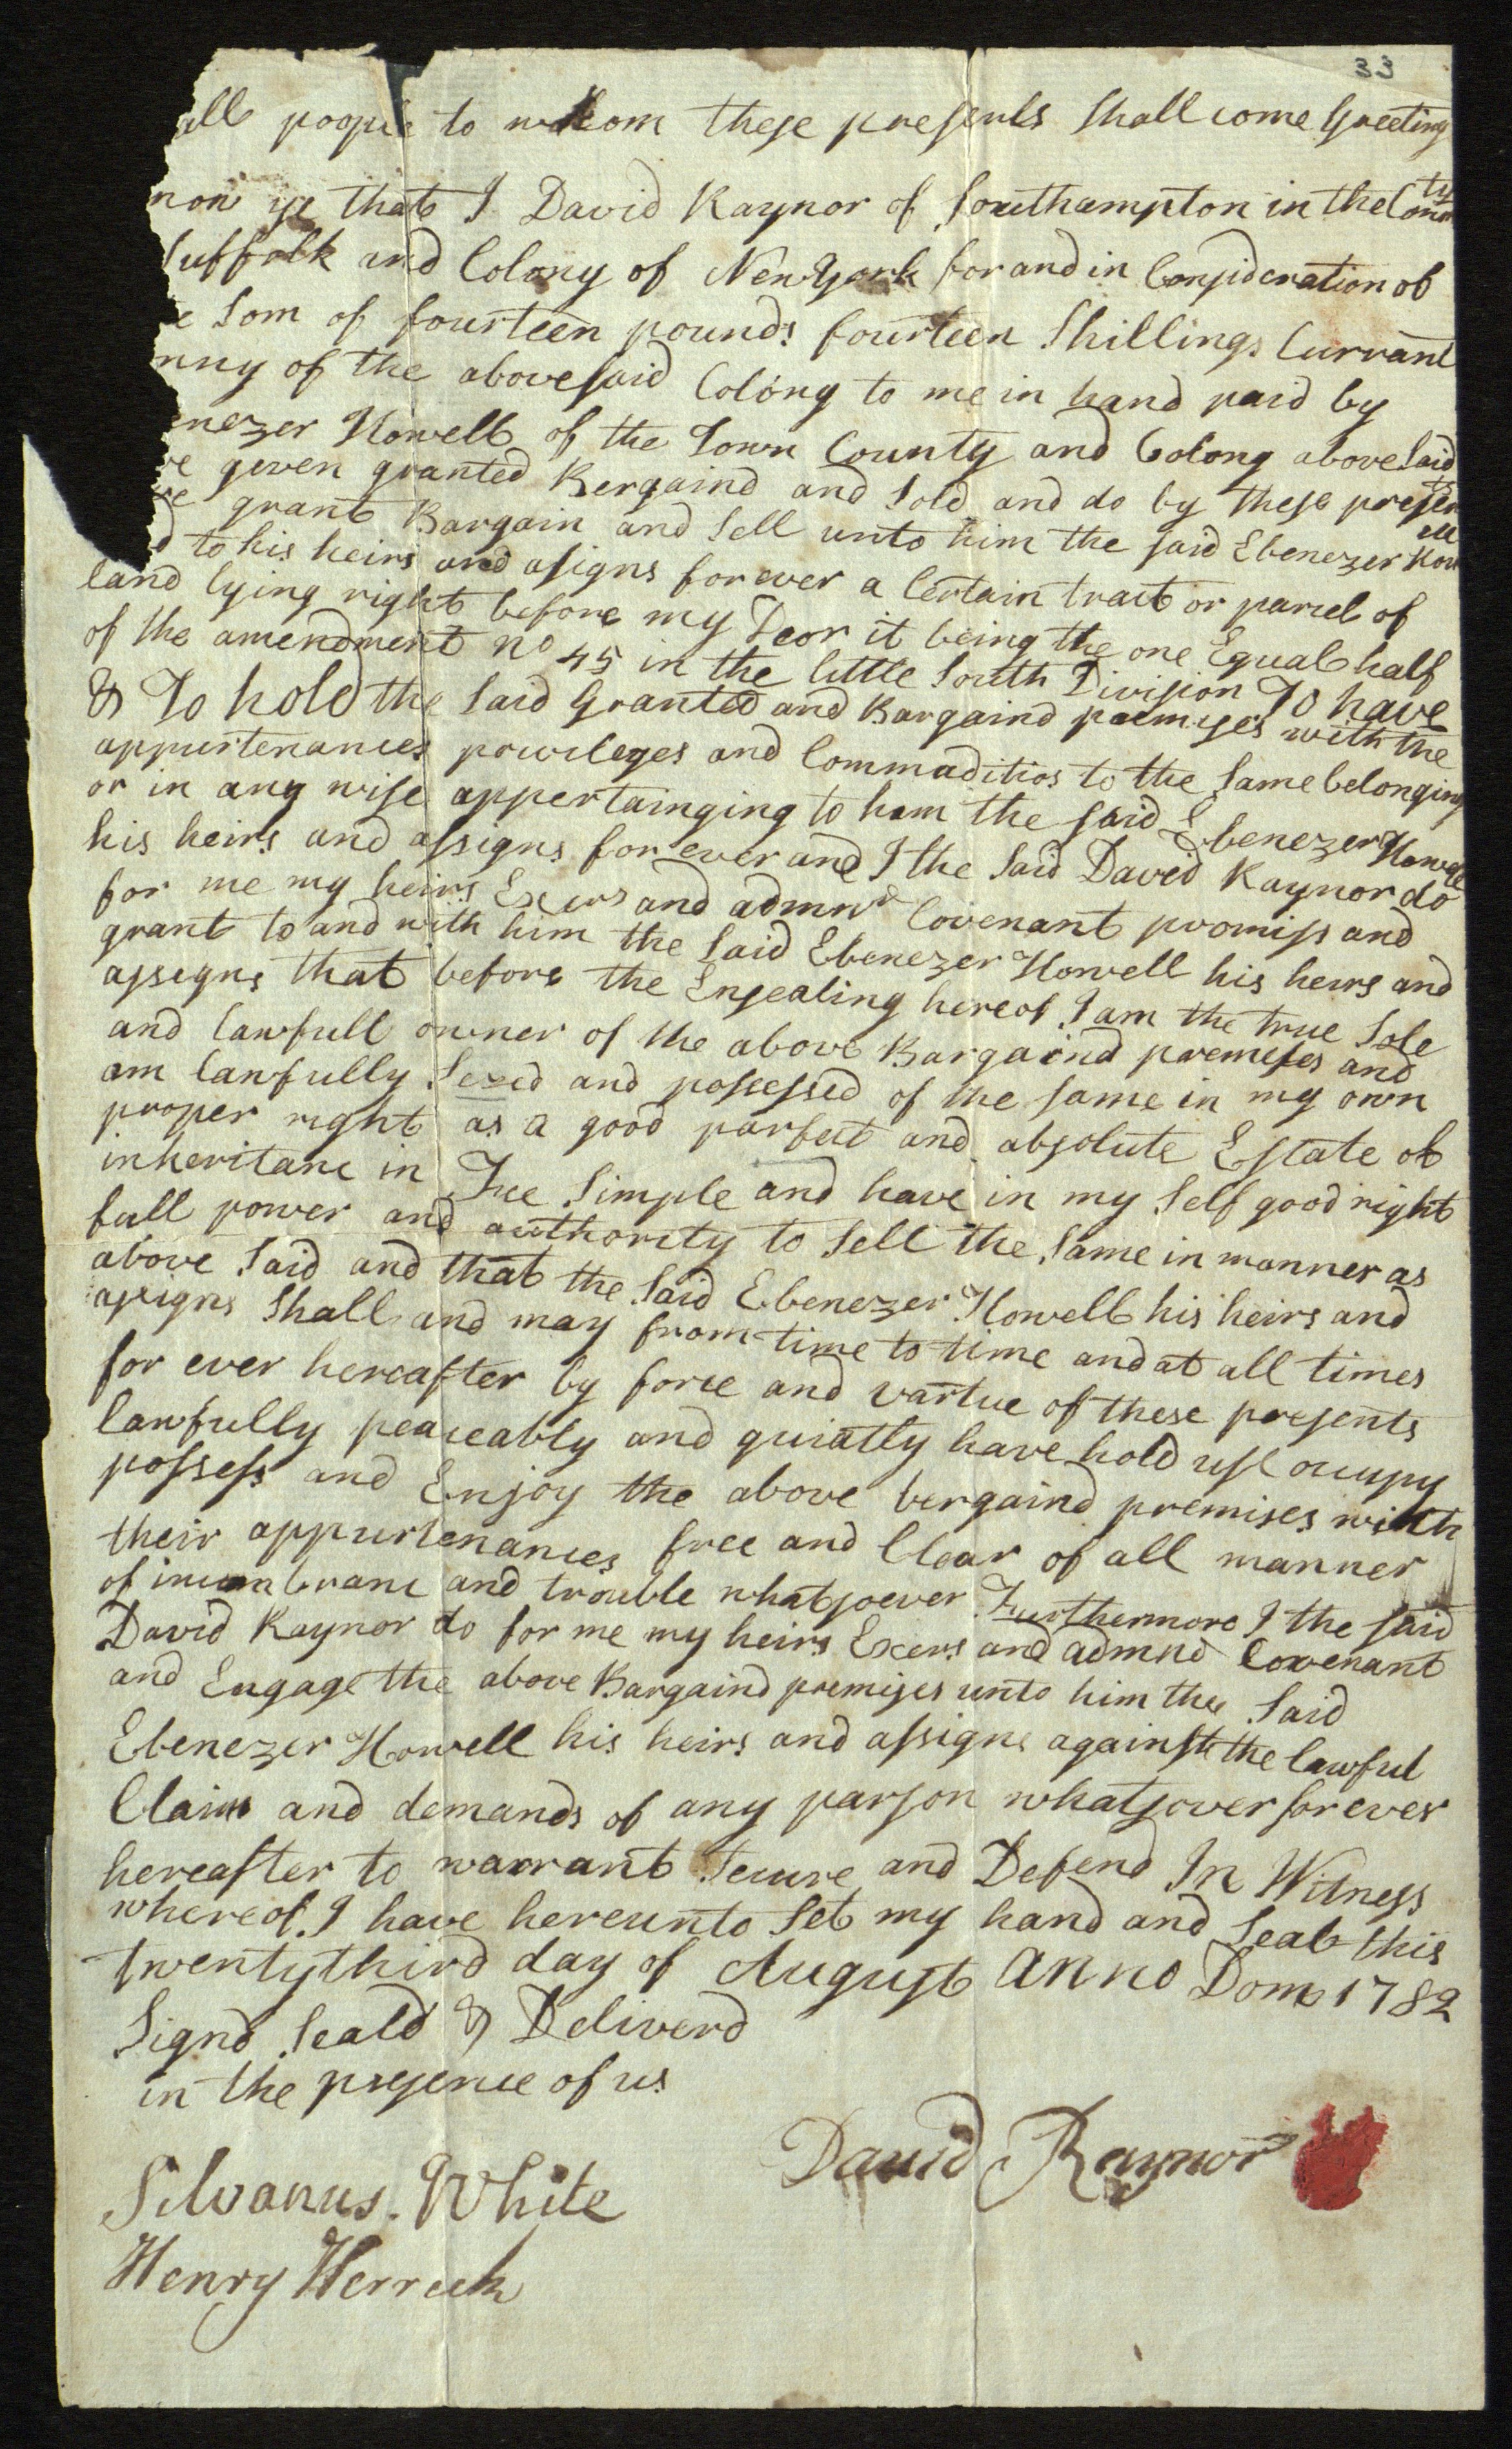 33
all poople to whom these presents Shall come Greeting
now ye that I David Raynor of Southampton in the County
Suffolk and Colony of New York for and in Consideration of
e Som of fourteen pounds fourteen Shillings Currant
nny of the above said Colony to me in hand paid by
enezer Howell of the Town County and Colony above Said
ve geven granted Bergaind and Sold and do by these presents
ve grant Bargain and Sell unto him the said Ebenezer Howell
d to his heirs and asigns for ever a Certain tract or parcel of
land lying right before my Door it being the one Equal half
of the amendment no 45 in the little South Division To have
& To hold the Said Granted and Bargaind premises with the
appurtenances privileges and Commaditios to the Same belonging
or in any wise appertainging to ham the said Ebenezer Howell
his heirs and assigns for ever and I the Said David Raynor do
for me my heirs Exers and admnd Covenant promiss and
grant to and with him the Said Ebenezer Howell his heirs and
assegns that before the Ensealing hereof I am the true Sole
and lawfull owner of the above Bargaind premeses and
am lawfully Sezed and possessed of the same in my own
proper right as a good parfect and absolute Estate of
inheritanc in Fee Simple and have in my Self good right
full power and authority to Sell the Same in manner as
above Said and that the Said Ebenezer Howell his heirs and
assigns Shall and may from time to time and at all times
for ever hereafter by force and vartue of these presents
lawfully peaceably and quiatly have hold use occupy
possess and Enjoy the above bergaind premises with
their appurtenances free and Clear of all manner
of incumbranc and trouble whatsoever Furthermore I the said
David Raynor do for me my heirs Exers and admnd Covenant
and Engage the above Bargaind premises unto him the Said
Ebenezer Howell his heirs and assigns against the lawful
Claims and demands of any parson whatsover forever
hereafter to warrant Secure and Defend In Witness
whereof I have hereunto Set my hand and Seal this
twentythird day of August anno Dom 1782
Signd Seald & Deliverd
in the presence of us
David Raynor
Silvanus White
Henry Herrick